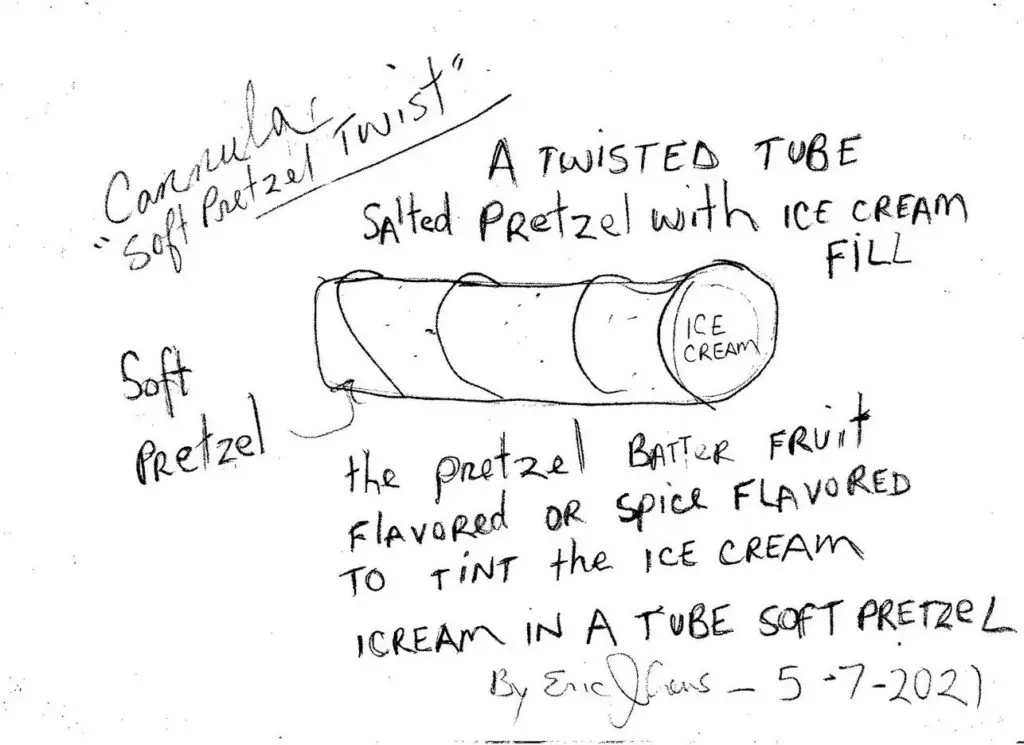 Cannular
"Soft Pretzel Twist"
A TWISTED TUBE
SAlted Pretzel with ICE CREAM
FILL
ICE
CREAM
Soft
PRetzel
the pretzel BATTER FRUIT
FLAVORED OR SPICE FLAVORED
TO TINT the ICE CREAM
ICREAM IN A TUBE SOFT PRETZEL
By Eric J - 5-7-2021